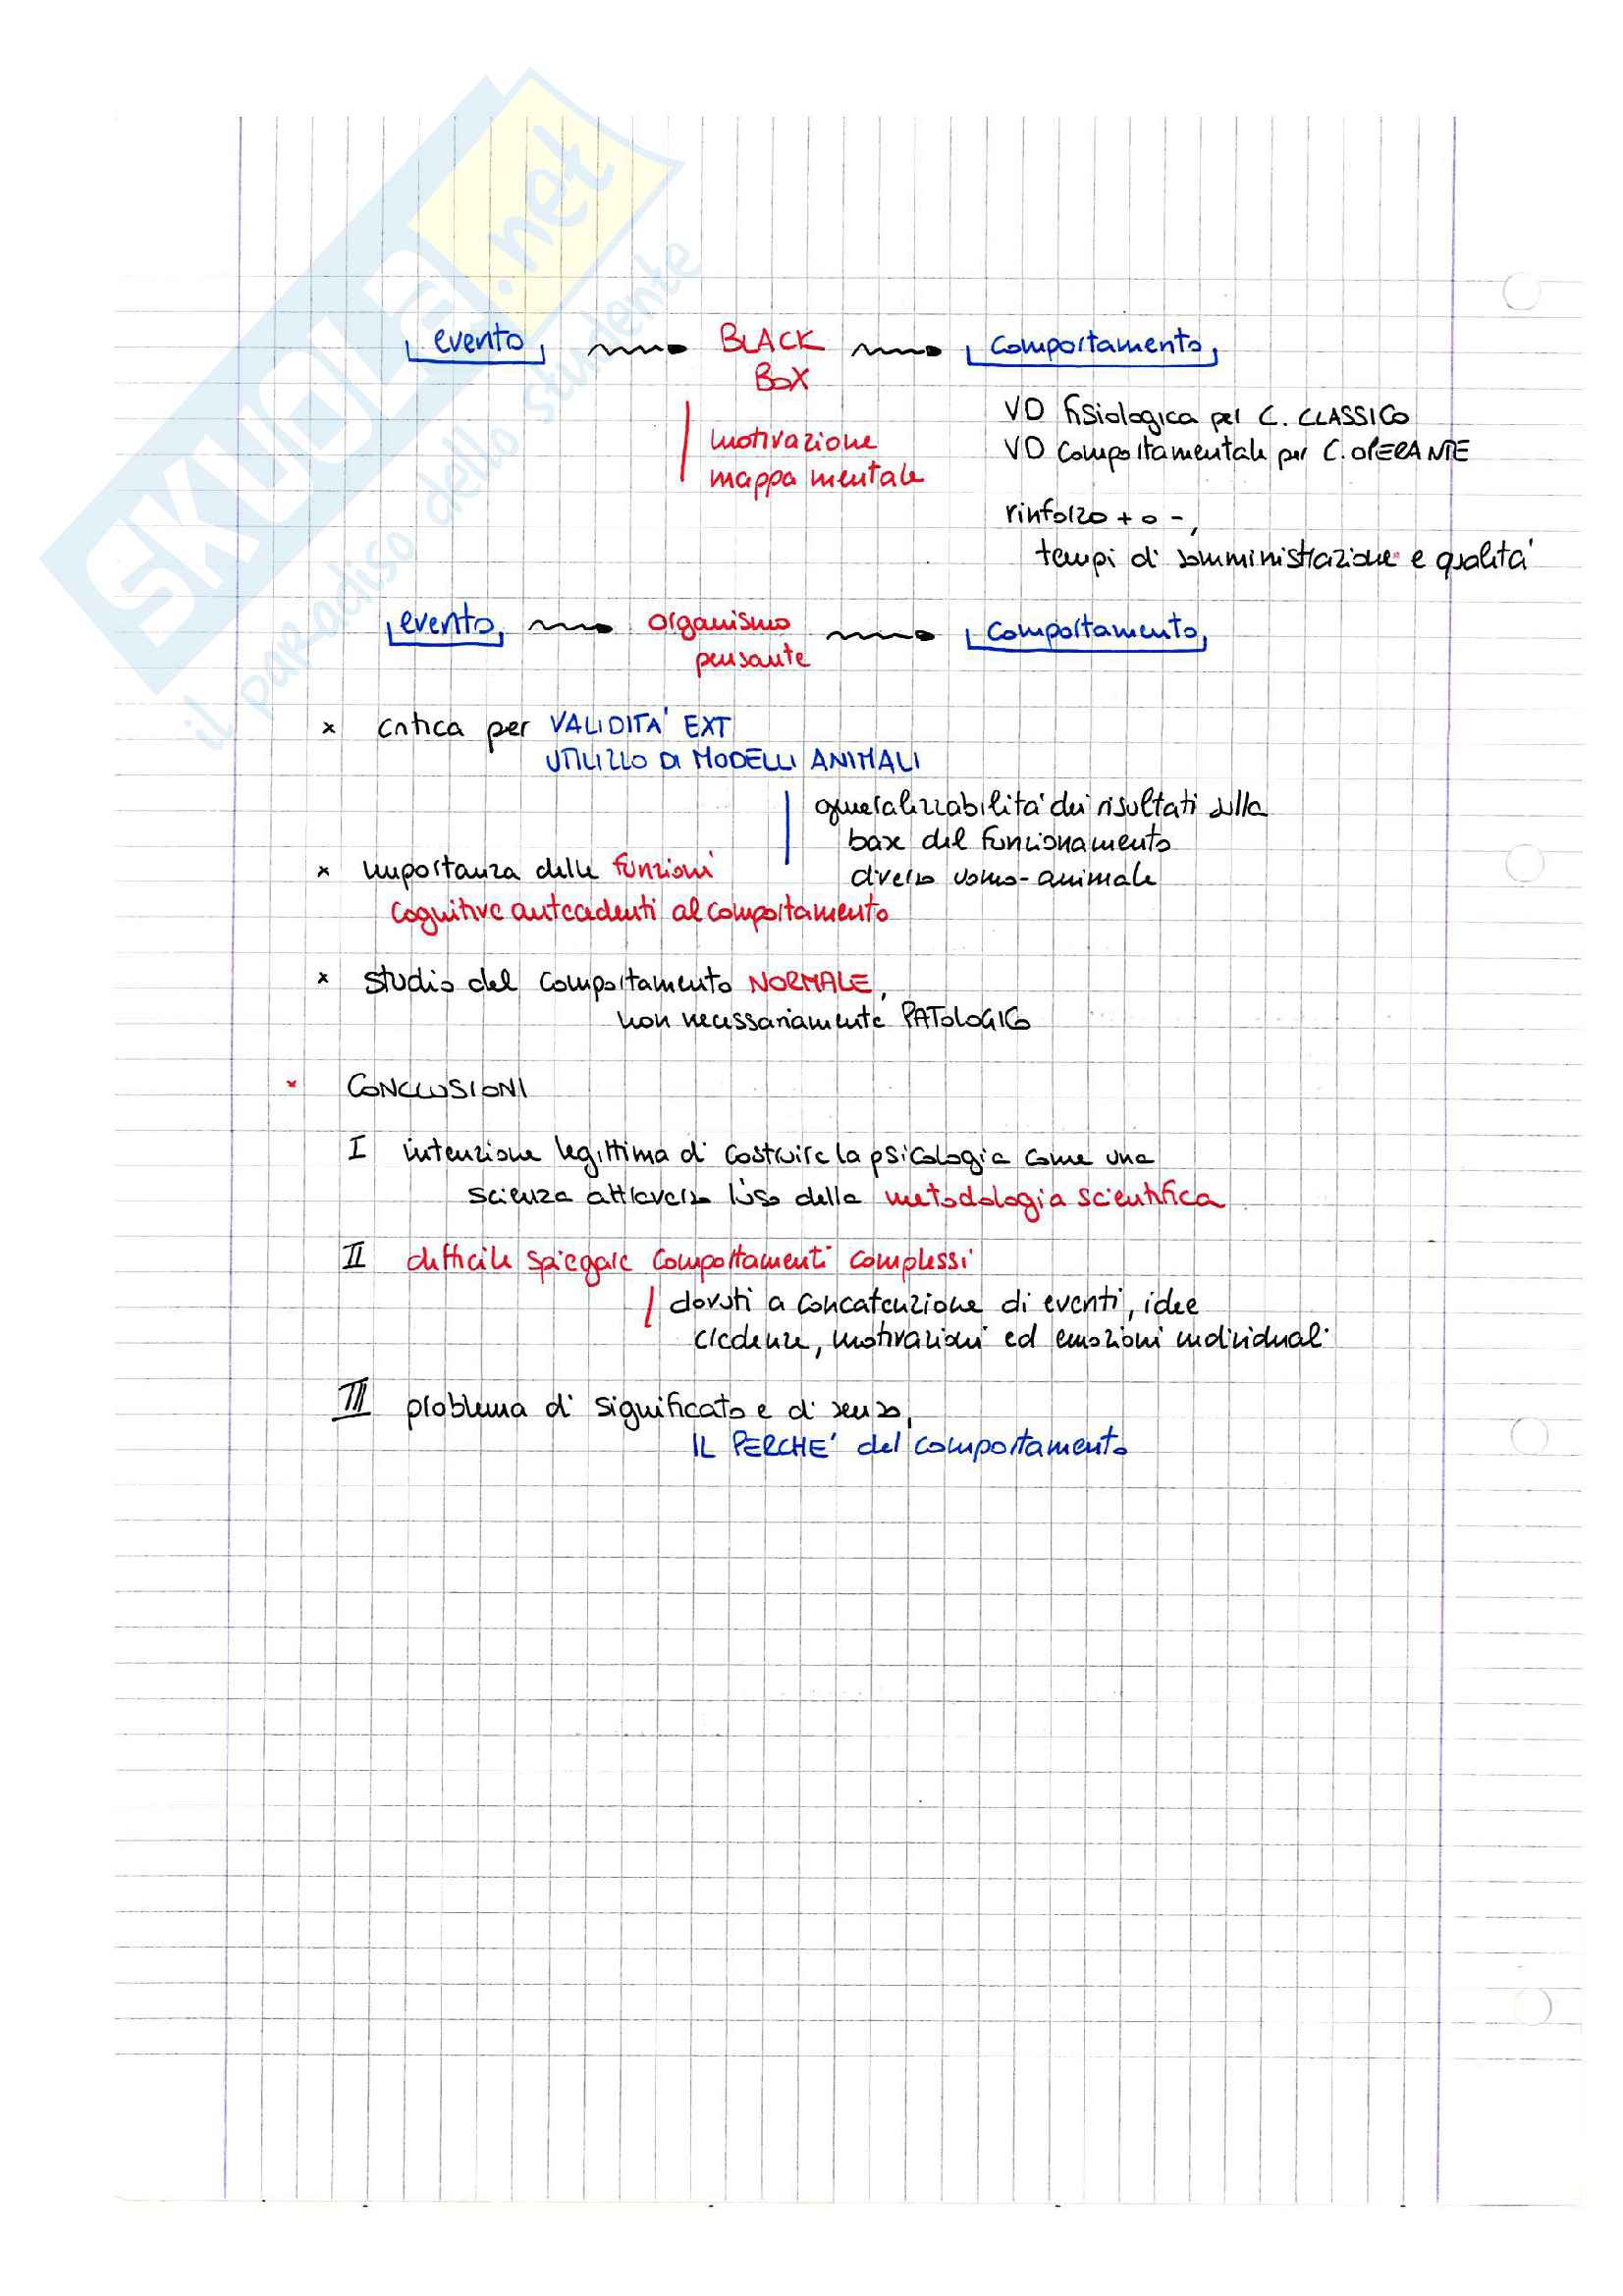 SKUOLA.net
il paradiso dello studente
evento BLACK comportamento
BOX
VD fisiologica per C. CLASSICO
motivazione
VD comportamentale per C. OPERANTE
mappa mentale
rinforzo + o -,
tempi di somministrazione e qualità
evento organismo comportamento
pensante
x critica per VALIDITA' EXT
UTILIZZO DI MODELLI ANIMALI
generalizzabilità dei risultati sulla
base del funzionamento
diverso uomo-animale
x importanza delle funzioni
cognitive antecedenti al comportamento
x studio del comportamento NORMALE,
non necessariamente PATOLOGICO
x CONCLUSIONI
I intenzione legittima di costruire la psicologia come una
scienza attraverso l'uso della metodologia scientifica
II difficile spiegare comportamenti complessi
dovuti a concatenzione di eventi, idee
credenze, motivazioni ed emozioni individuali
III problema di significato e di senso,
IL PERCHE' del comportamento